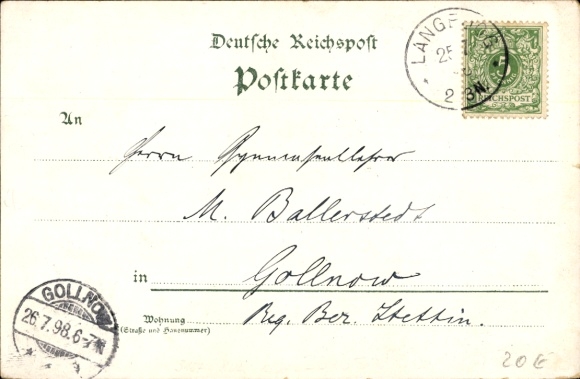 Deutsche Reichspost
Postkarte
LANGF
25 7 98
2-3N.
5
REICHSPOST
An
Herrn Gymnasiallehrer
M. Ballerstedt
in Gollnow
Wohnung Reg. Bez. Stettin.
(Straße und Hausnummer)
GOLLNOW
26.7.98.6-7N
20 €